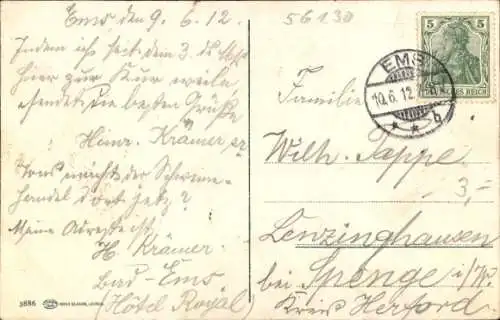 Ems den 9. 6. 12.
Indem ich seit dem 3. ds Mts
hier zur Kur weile
sendet die besten Grüße
Heinr. Krämer sr
Was macht der Schweine-
handel dort jetzt?
Meine Adresse ist
H. Krämer
Bad-Ems
(Hôtel Royal)
3886
56130
5 5
DEUTSCHES REICH
EMS
10.6.12.
* * b
Familie
Wilh. Pappe
3,-
Lenzinghausen
bei Spenge i/W.
Kreis Herford